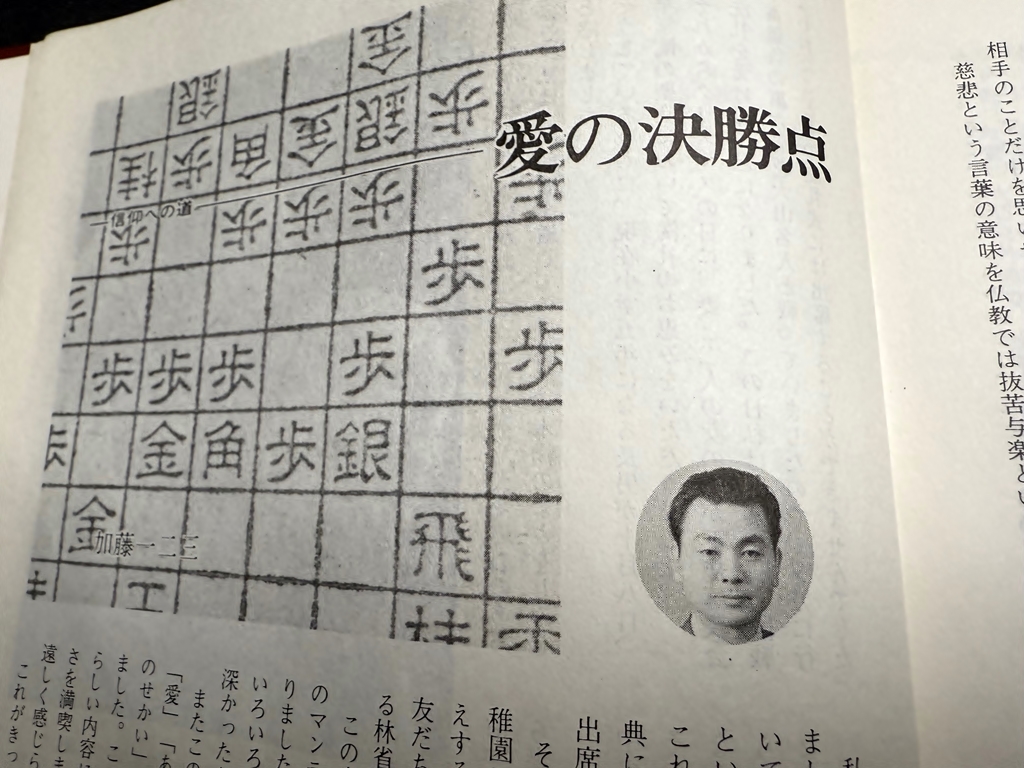 相手のことだけを思い
慈悲という言葉の意味を仏教では抜苦与楽とい
愛の決勝点
信仰への道
加藤一二三
金
銀
歩
銀
金
角
歩
桂
歩
歩
歩
歩
歩
歩
歩
歩
歩
歩
歩
銀
歩
角
金
歩
飛
金
私
まし
いて
とい
これ
典に
出席
そ
稚園
えする
友だち
る林省
この
のマン
りました
いろいろ
深かった
またこの
「愛」「あ
のせかい」
ました。こ
らしい内容に
さを満喫しま
遠しく感じら
これがきっ